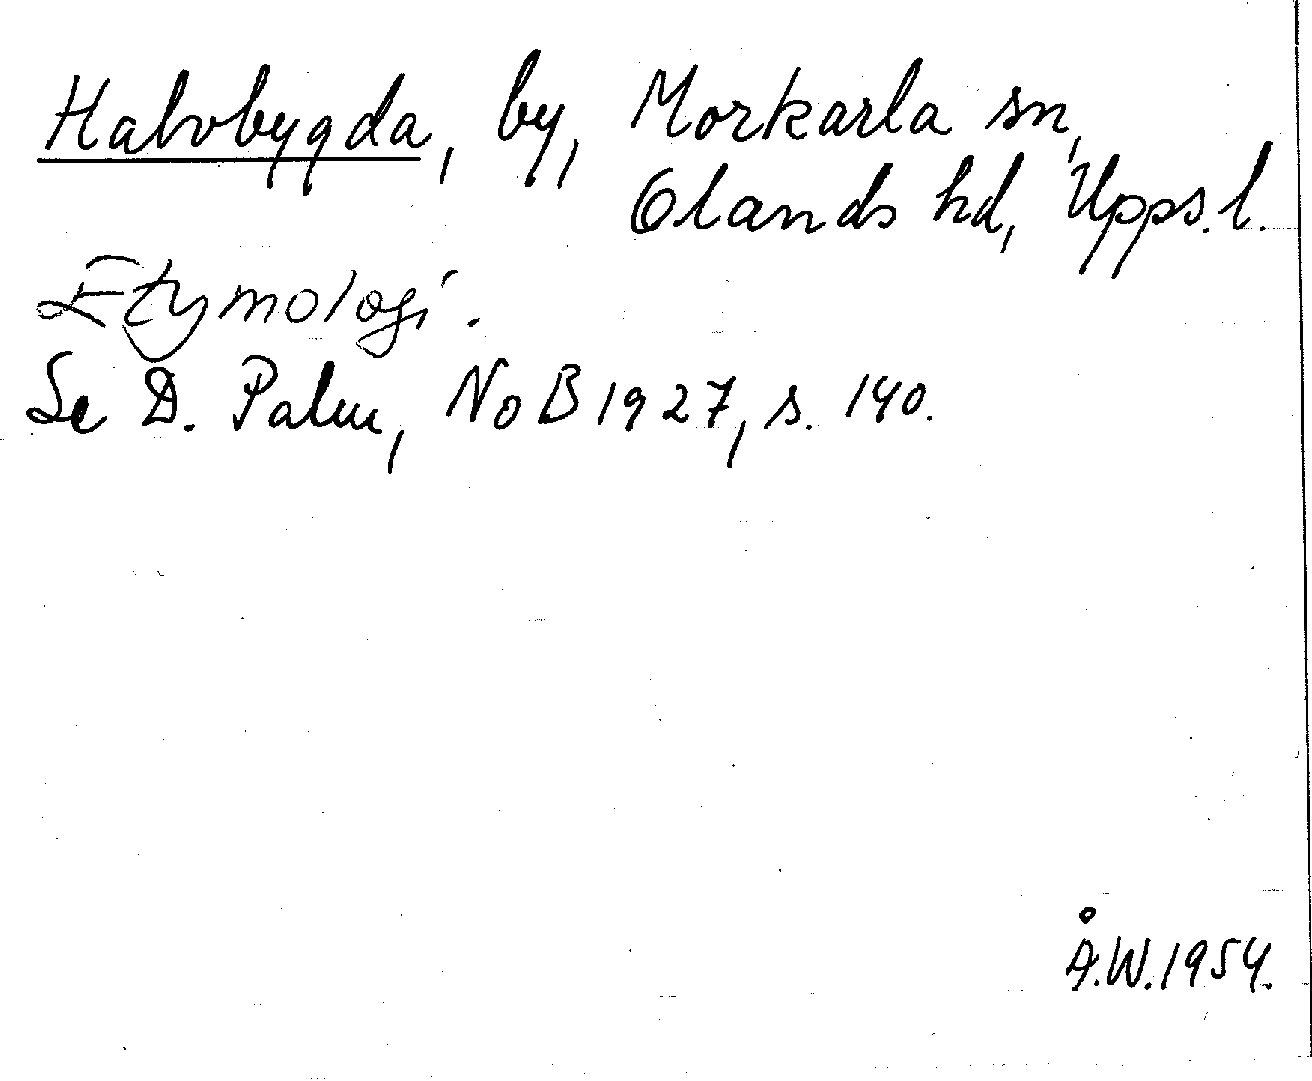 Halvbygda, by, Morkarla sn,
Olands hd, Upps. l.
Etymologi.
Se D. Palm, NoB 1927, s. 140.
Å.W. 1954.